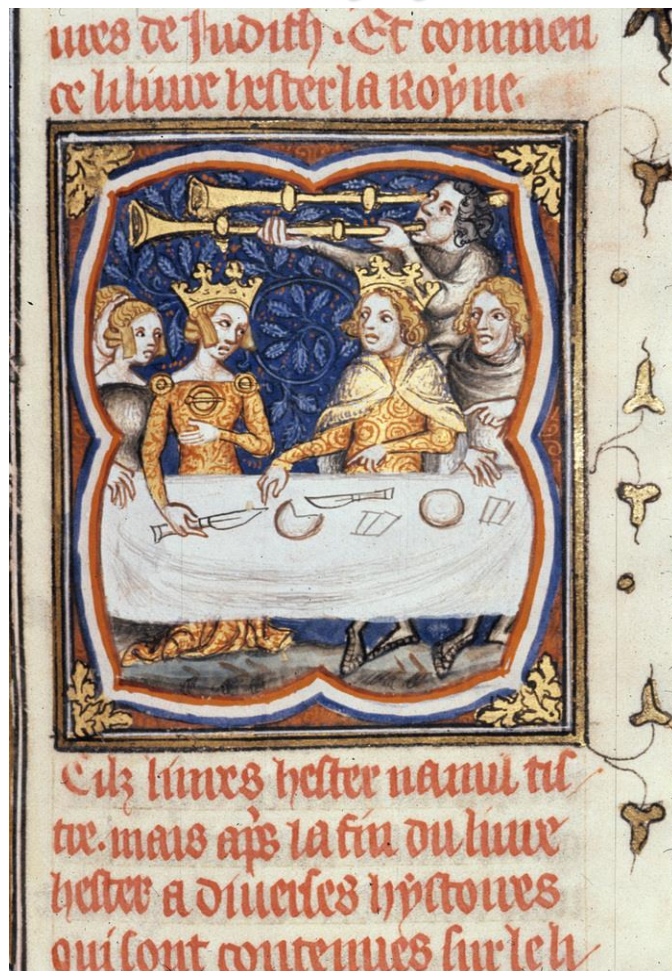 ures de Judith. Et commen
ce li liure hester la Royne.
Cilz liures hester na nul tis
tre. mais aps la fin du liure
hester a diuerses hystoires
qui sont contenues sur le li